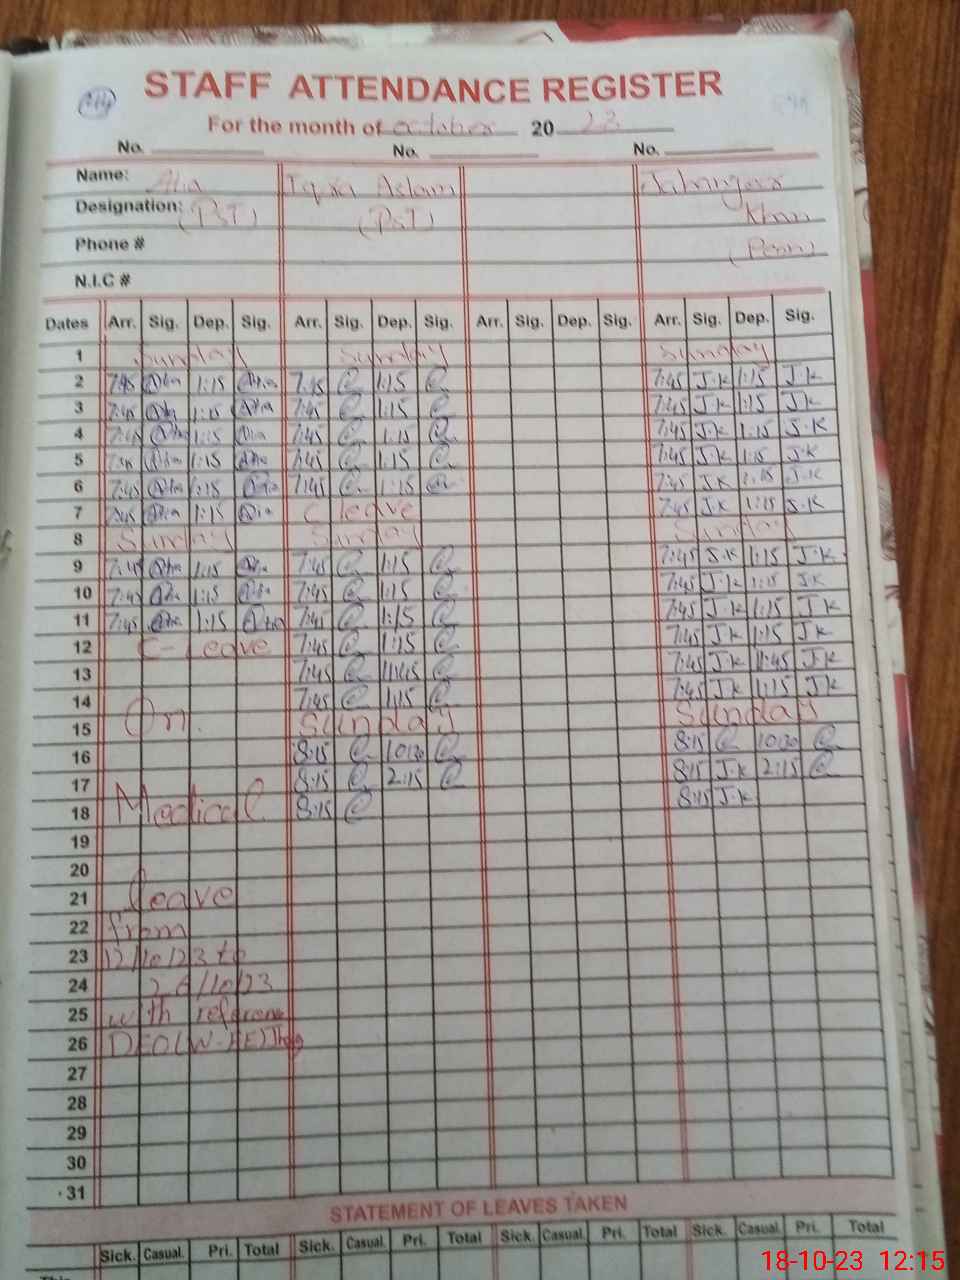 STAFF ATTENDANCE REGISTER
For the month of october 20 23
No. No. No.
Name: Alia Iqra Aslam Jahangeer
Designation: (PST) (PST) Khan
Phone # (Peon)
N.I.C #
Dates Arr. Sig. Dep. Sig. Arr. Sig. Dep. Sig. Arr. Sig. Dep. Sig. Arr. Sig. Dep. Sig.
1 Sunday Sunday Sunday
2 7:45 Alia 1:15 Alia 7:45 1:15 7:45 J.K 1:15 J.K
3 7:45 Alia 1:15 Alia 7:45 1:15 7:45 J.K 1:15 J.K
4 7:45 Alia 1:15 Alia 7:45 1:15 7:45 J.K 1:15 J.K
5 7:45 Alia 1:15 Alia 7:45 1:15 7:45 J.K 1:15 J.K
6 7:45 Alia 1:15 Alia 7:45 1:15 7:45 J.K 1:15 J.K
7 7:45 Alia 1:15 Alia C leave 7:45 J.K 1:15 J.K
8 Sunday Sunday Sunday
9 7:45 Alia 1:15 Alia 7:45 1:15 7:45 J.K 1:15 J.K
10 7:45 Alia 1:15 Alia 7:45 1:15 7:45 J.K 1:15 J.K
11 7:45 Alia 1:15 Alia 7:45 1:15 7:45 J.K 1:15 J.K
12 C-leave 7:45 1:15 7:45 J.K 1:15 J.K
13 7:45 11:45 7:45 J.K 11:45 J.K
14 7:45 1:15 7:45 J.K 1:15 J.K
15 On Sunday Sunday
16 8:15 10:30 8:15 10:30
17 8:15 2:15 8:15 J.K 2:15
18 Medical 8:15 8:15 J.K
19
20
21 leave
22 from
23 12/10/23 to
24 26/10/23
25 with reference
26 DEO(W-EE)
27
28
29
30
31
STATEMENT OF LEAVES TAKEN
Sick. Casual. Pri. Total Sick. Casual. Pri. Total Sick. Casual. Pri. Total Sick. Casual. Pri. Total
This
18-10-23 12:15